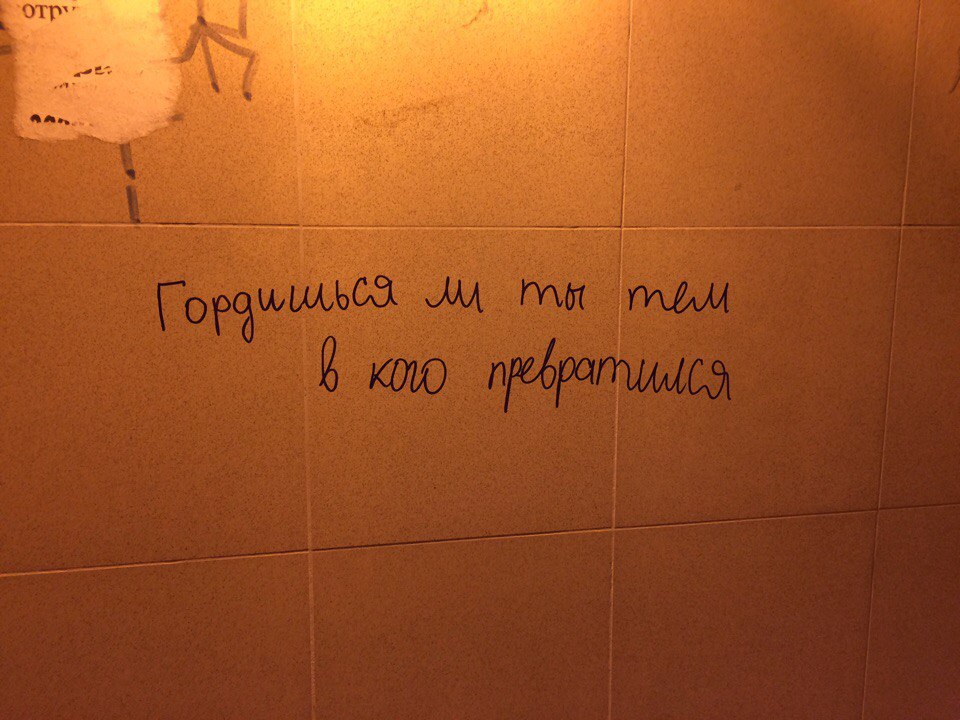 отру
Гордишься ли ты тем
в кого превратился